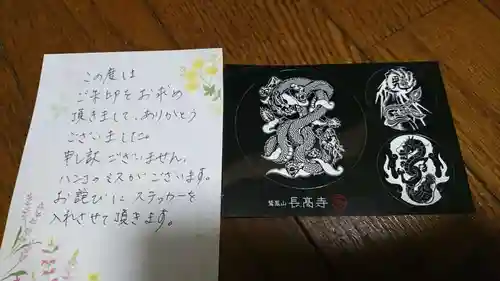 この度は
ご朱印をお求め
頂きまして、ありがとう
ございました。
申し訳ございません。
ハンコのミスがございます。
お詫びに ステッカーを
入れさせて頂きます。
鷲鳳山 長高寺